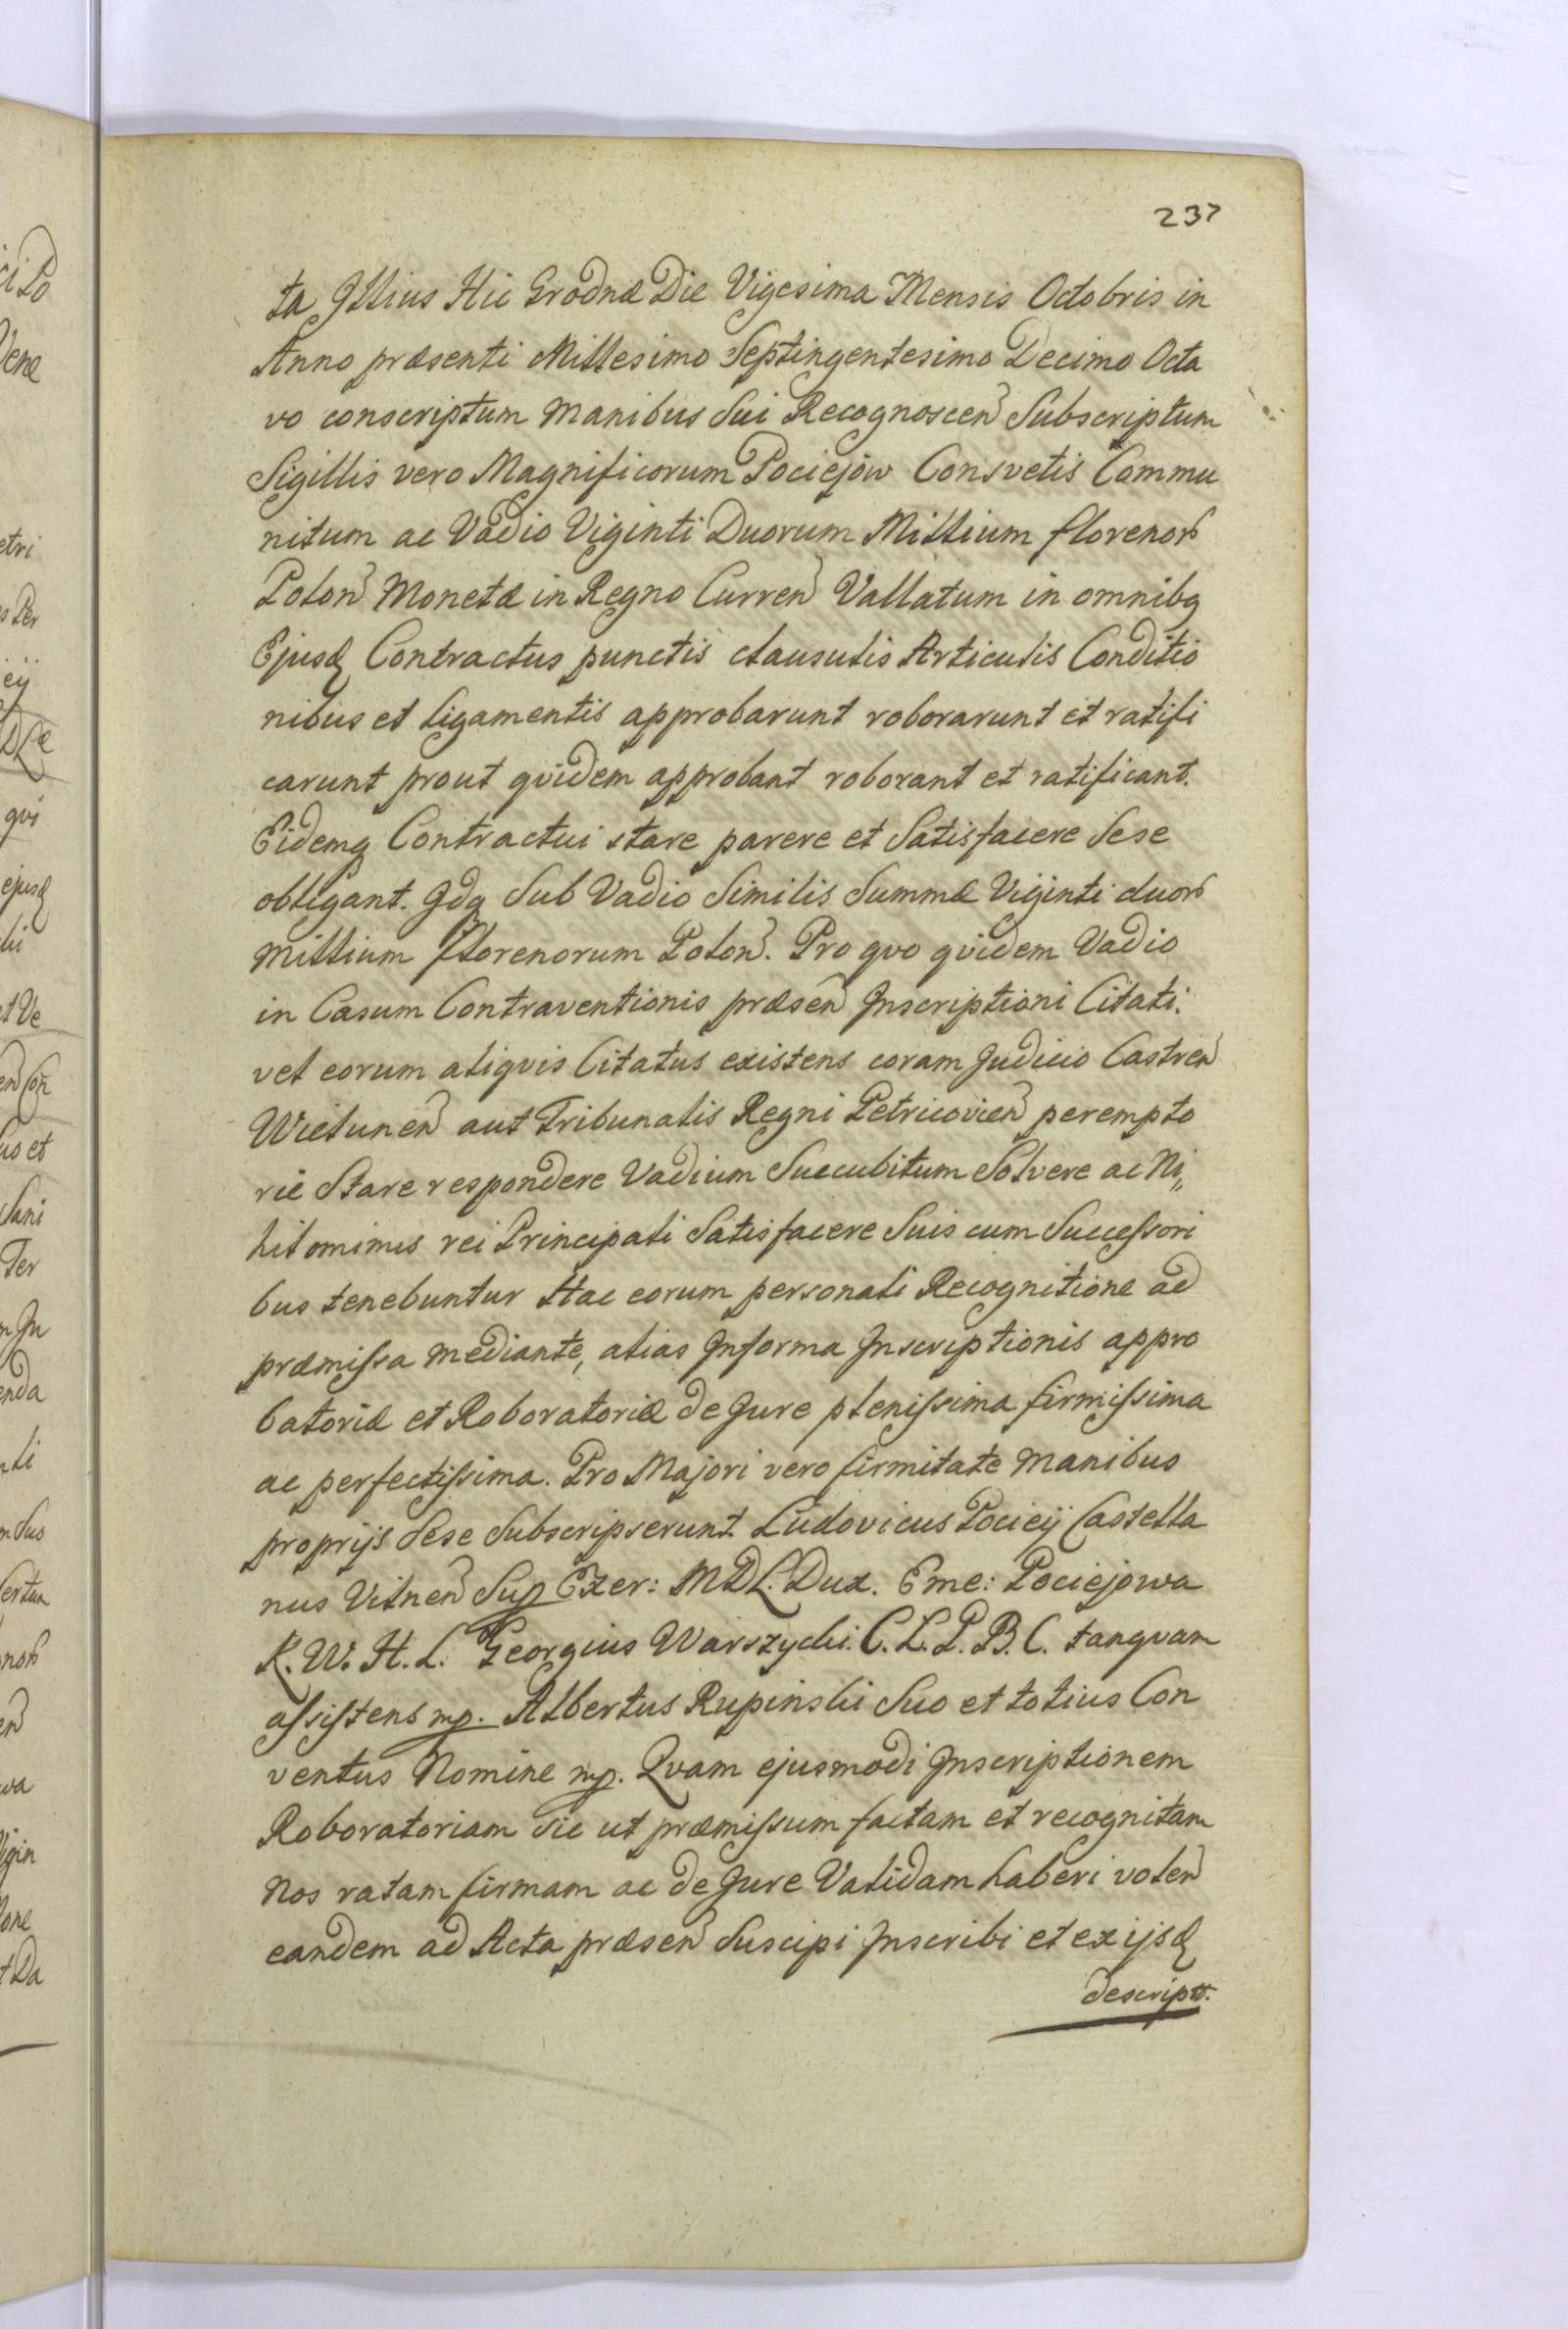 237
ta Illius Hic Grodnæ Die Vigesima Mensis Octobris in
Anno præsenti Millesimo Septingentesimo Decimo Octa
vo conscriptum manibus Sui Recognoscen Subscriptum
Sigillis vero Magnificorum Pociejow Consvetis Commu
nitum ac Vadio Viginti Duorum Millium florenor
Polon Monetæ in Regno Curren Vallatum in omnibq
Ejusd Contractus punctis clausulis Articulis Conditio
nibus et ligamentis approbarunt roborarunt et ratifi
carunt prout qvidem approbant roborant et ratificant.
Eidemq Contractui stare parere et Satisfacere Sese
obligant. Idq Sub Vadio Similis Summæ Viginti duor
millium florenorum Polon. Pro qvo qvidem Vadio
in Casum Contraventionis præsen Inscriptioni Citati.
vel eorum aliqvis Citatus existens coram Judicio Castren
Wielunen aut Tribunalis Regni Petricovien perempto
rie Stare respondere Vadium Succubitum Solvere ac Ni„
hilominus rei Principali Satisfacere Suis cum Successori
bus tenebuntur Hac eorum personali Recognitione ad
præmissa mediante, alias Informa Inscriptionis appro
batoriæ et Roboratoriæ de Jure plenissima firmissima
ac perfectissima. Pro Majori vero firmitate manibus
proprijs Sese Subscripserunt Ludovicus Pociey Castella
nus Vilnen Sup Exer: MDL. Dux. Eme: Pociejowa
K. W. H. L. Georgius Warszycki. C. L. P. B. C. tanqvam
assistens mp. Albertus Rupinski Suo et totius Con
ventus Nomine mp. Qvam ejusmodi Inscriptionem
Roboratoriam sic ut præmissum factam et recognitam
Nos ratam firmam ac de Jure Validam haberi volen
eandem ad Acta præsen Suscipi Inscribi et ex ijsd
descript.